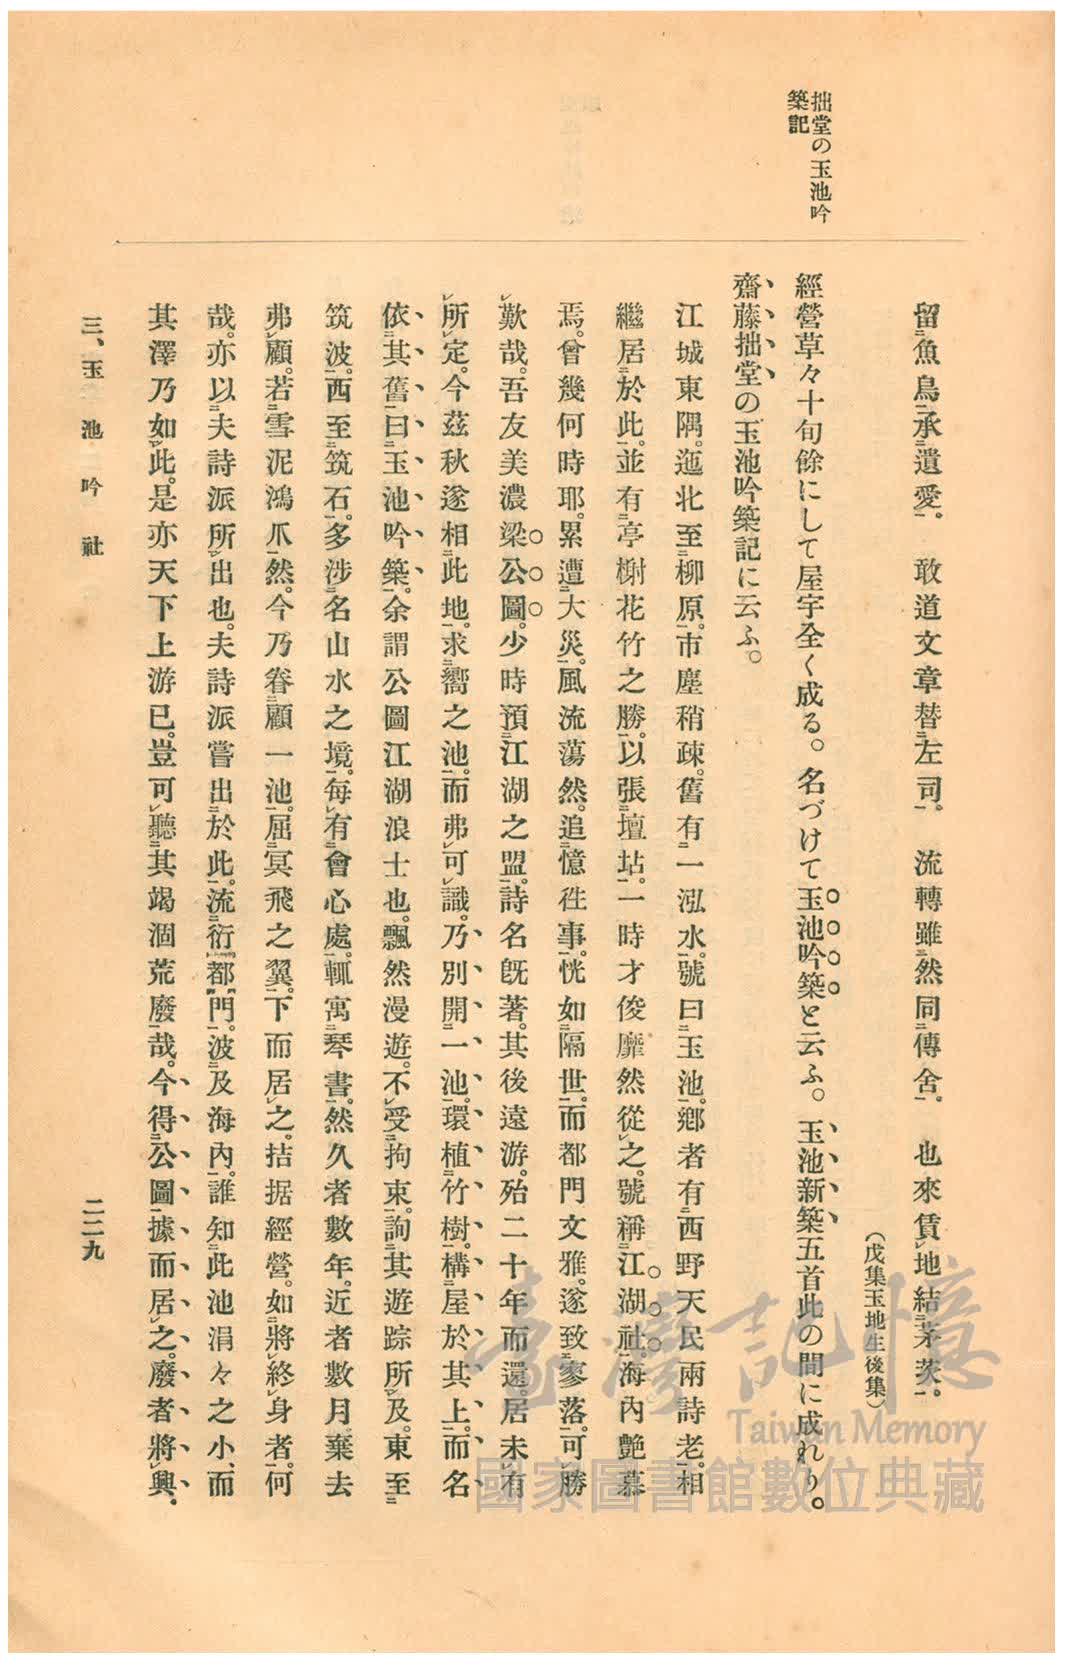 拙堂の玉池吟
築記
留魚鳥承遺愛。 敢道文章替左司。 流轉雖然同傳舍。 也來賃地結茅茨。
(戊集玉地生後集)
經營草々十旬餘にして屋宇全く成る。名づけて玉池吟築と云ふ。玉池新築五首此の間に成れり。
齋藤拙堂の玉池吟築記に云ふ。
江城東隅。迤北至柳原。市塵稍疎。舊有一泓水。號曰玉池。鄕者有西野天民兩詩老。相
繼居於此。並有亭榭花竹之勝。以張壇坫。一時才俊靡然從之。號稱江湖社。海內艶慕
焉。曾幾何時耶。累遭大災。風流蕩然。追憶徃事。恍如隔世。而都門文雅。遂致寥落。可勝
歎哉。吾友美濃梁公圖。少時預江湖之盟。詩名旣著。其後遠游。殆二十年而還。居未有
所定。今茲秋遂相此地。求嚮之池。而弗可識。乃別開一池。環植竹樹。構屋於其上。而名
依其舊曰玉池吟築。余謂公圖江湖浪士也。飄然漫遊。不受拘束。詢其遊踪所及。東至
筑波。西至筑石。多涉名山水之境。每有會心處。輒寓琴書。然久者數年。近者數月。棄去
弗顧。若雪泥鴻爪然。今乃眷顧一池。屈冥飛之翼。下而居之。拮据經營。如將終身者。何
哉。亦以夫詩派所出也。夫詩派嘗出於此。流衍都門。波及海內。誰知此池涓々之小、而
其澤乃如此。是亦天下上游已。豈可聽其竭涸荒廢哉。今得公圖據而居之。廢者將興。
三、玉池吟社
二二九
臺灣記憶
Taiwan Memory
國家圖書館數位典藏